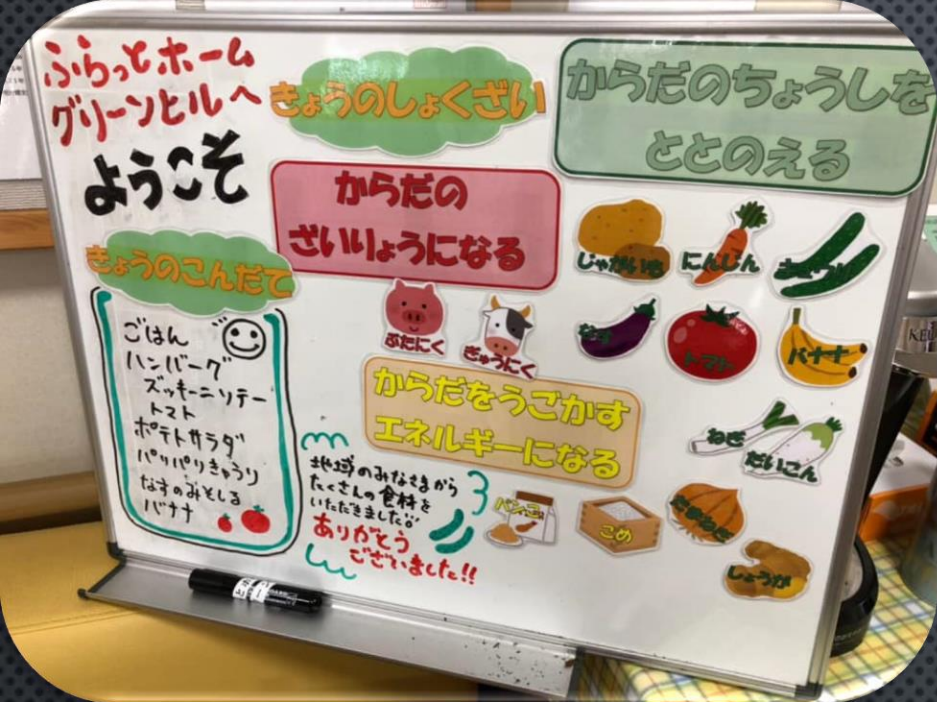 ふらっとホーム
グリーンヒルへ
ようこそ
きょうのこんだて
ごはん
ハンバーグ
ズッキーニソテー
トマト
ポテトサラダ
パリパリきゅうり
なすのみそしる
バナナ
きょうのしょくざい
からだの
ざいりょうになる
ぶたにく
ぎゅうにく
からだをうごかす
エネルギーになる
パンこ
こめ
地域のみなさまから
たくさんの食材を
いただきました。
ありがとう
ございました!!
からだのちょうしを
ととのえる
じゃがいも
にんじん
きゅうり
なす
トマト
バナナ
ねぎ
だいこん
たまねぎ
しょうが